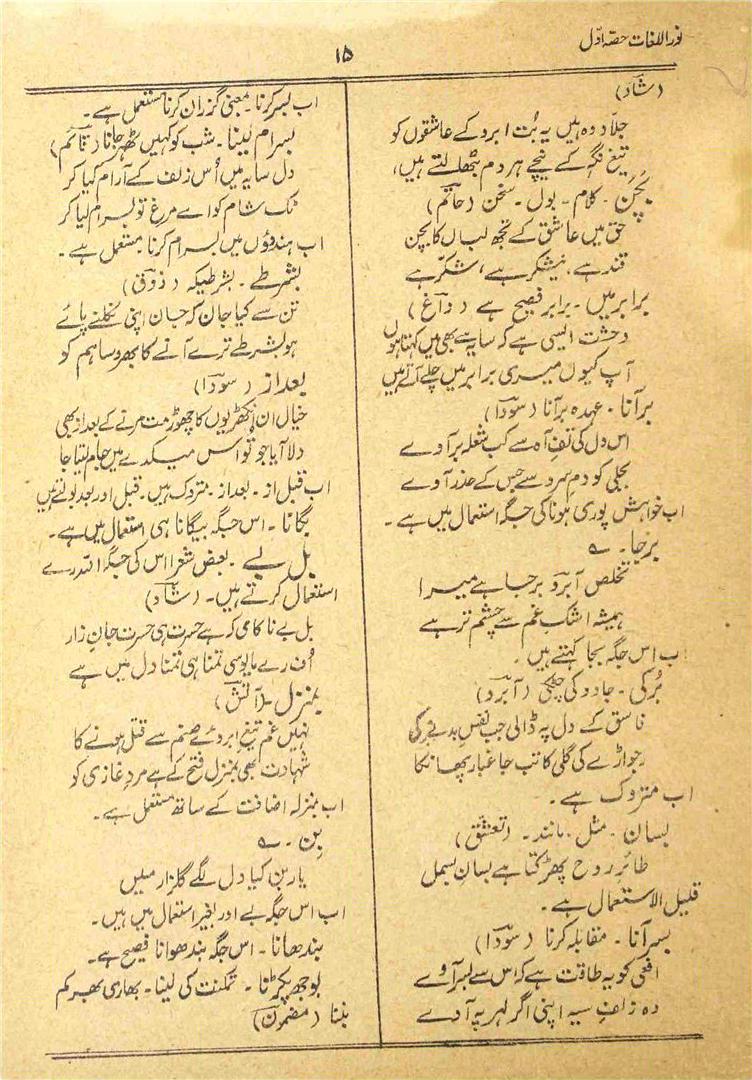 نور اللغات حصہ اوّل
۱۵
(شاد)
جلّاد وہ ہیں یہ بُت ابرو کے عاشقوں کو
تیغِ نگہ کے نیچے ہر دم بٹھلتے ہیں،
بچن - کلام - بول - سخن (حاتم)
حق میں عاشق کے تجھ لباں کا بچن
قند ہے، نیشکر ہے، شکّر ہے
برابر میں - برابر فصیح ہے (داغ)
وحشت ایسی ہے کہ سایہ سے بھی میں کہتا ہوں
آپ کیوں میری برابر میں چلے آتے ہیں
برآنا - عہدہ برآنا (سودا)
اس دل کی تفِ آہ سے کب شعلہ برآوے
بجلی کو دمِ سرد سے جس کے حذر آوے
اب خواہش پوری ہونا کی جگہ استعمال میں ہے -
برجا - ؎
تخلص آبرو برجا ہے میرا
ہمیشہ اشکِ غم سے چشم تر ہے
ب اس جگہ بجا کہتے ہیں -
بُرکی - جادو کی چٹکی (آبرو)
فاسق کے دل پہ ڈالی جب نفسِ بد نے برکی
رجواڑے کی گلی کا تب جا غبار پھانکا
اب متروک ہے -
بسان - مثل - مانند - (تعشق)
طائرِ روح پھڑکتا ہے بسانِ بسمل
قلیل الاستعمال ہے -
بسر آنا - مقابلہ کرنا (سودا)
افعی کو یہ طاقت ہے کہ اس سے بسر آوے
وہ زلفِ سیہ اپنی اگر لہر پہ آوے
اب بسر کرنا - بمعنی گزران کرنا مستعمل ہے -
بسرام لینا - شب کو کہیں ٹھہر جانا (قائم)
دل سایہ میں اُس زلف کے آرام کیا کر
ٹک شام کو اے مرغ تو بسرام لیا کر
اب ہندوؤں میں بسرام کرنا مستعمل ہے -
بشرطے - بشرطیکہ (ذوق)
تن سے کیا جان کہ جسان اپنی نکلنے پائے
ہو بشرطے ترے آنے کا بھروسا ہم کو
بعد از (سودا)
خیال ان انکھڑیوں کا چھوڑ مت مرنے کے بعد از بھی
دلا آیا جو تو اس میکدے میں جام لیتا جا
اب قبل از - بعد از - متروک ہیں - قبل اور بعد بولتے ہیں
بگانا - اس جگہ بیگانا ہی استعمال میں ہے -
بل بے - بعض شعرا اس کی جگہ اللہ رے
استعمال کرتے ہیں - (شاد)
بل بے ناکامی کہ ہے حسرت ہی حسرت جانِ زار
اُف رے مایوسی تمنا ہی تمنا دل میں ہے
بمنزل - (آتش)
نہیں غم تیغِ ابروئے صنم سے قتل ہونے کا
شہادت بھی بمنزل فتح کے ہے مردِ غازی کو
اب بمنزلہ اضافت کے ساتھ مستعمل ہے -
بِن - ؎
یار بن کیا دل لگے گلزار میں
اب اس جگہ بے اور بغیر استعمال میں ہیں -
بندھانا - اس جگہ بندھوانا فصیح ہے -
بوجھ پکڑنا - تمکنت کی لینا - بھاری بھرکم
بننا (مضمون)